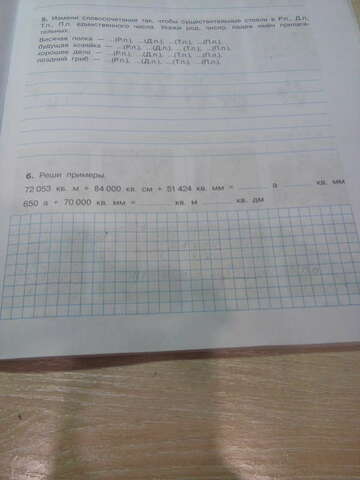 5. Измени словосочетания так, чтобы существительные стояли в Р.п., Д.п.,
Т.п., П.п. единственного числа. Укажи род, число, падеж имён прилага-
тельных.
Висячая полка — ...(Р.п.), ...(Д.п.), ...(Т.п.), ...(П.п.).
будущая хозяйка — ...(Р.п.), ...(Д.п.), ...(Т.п.), ...(П.п.).
хорошее дело — ...(Р.п.), ...(Д.п.), ...(Т.п.), ...(П.п.).
поздний гриб — ...(Р.п.), ...(Д.п.), ...(Т.п.), ...(П.п.).
6. Реши примеры.
72 053 кв. м + 84 000 кв. см + 51 424 кв. мм = а кв. мм
650 а + 70 000 кв. мм = кв. м кв. дм